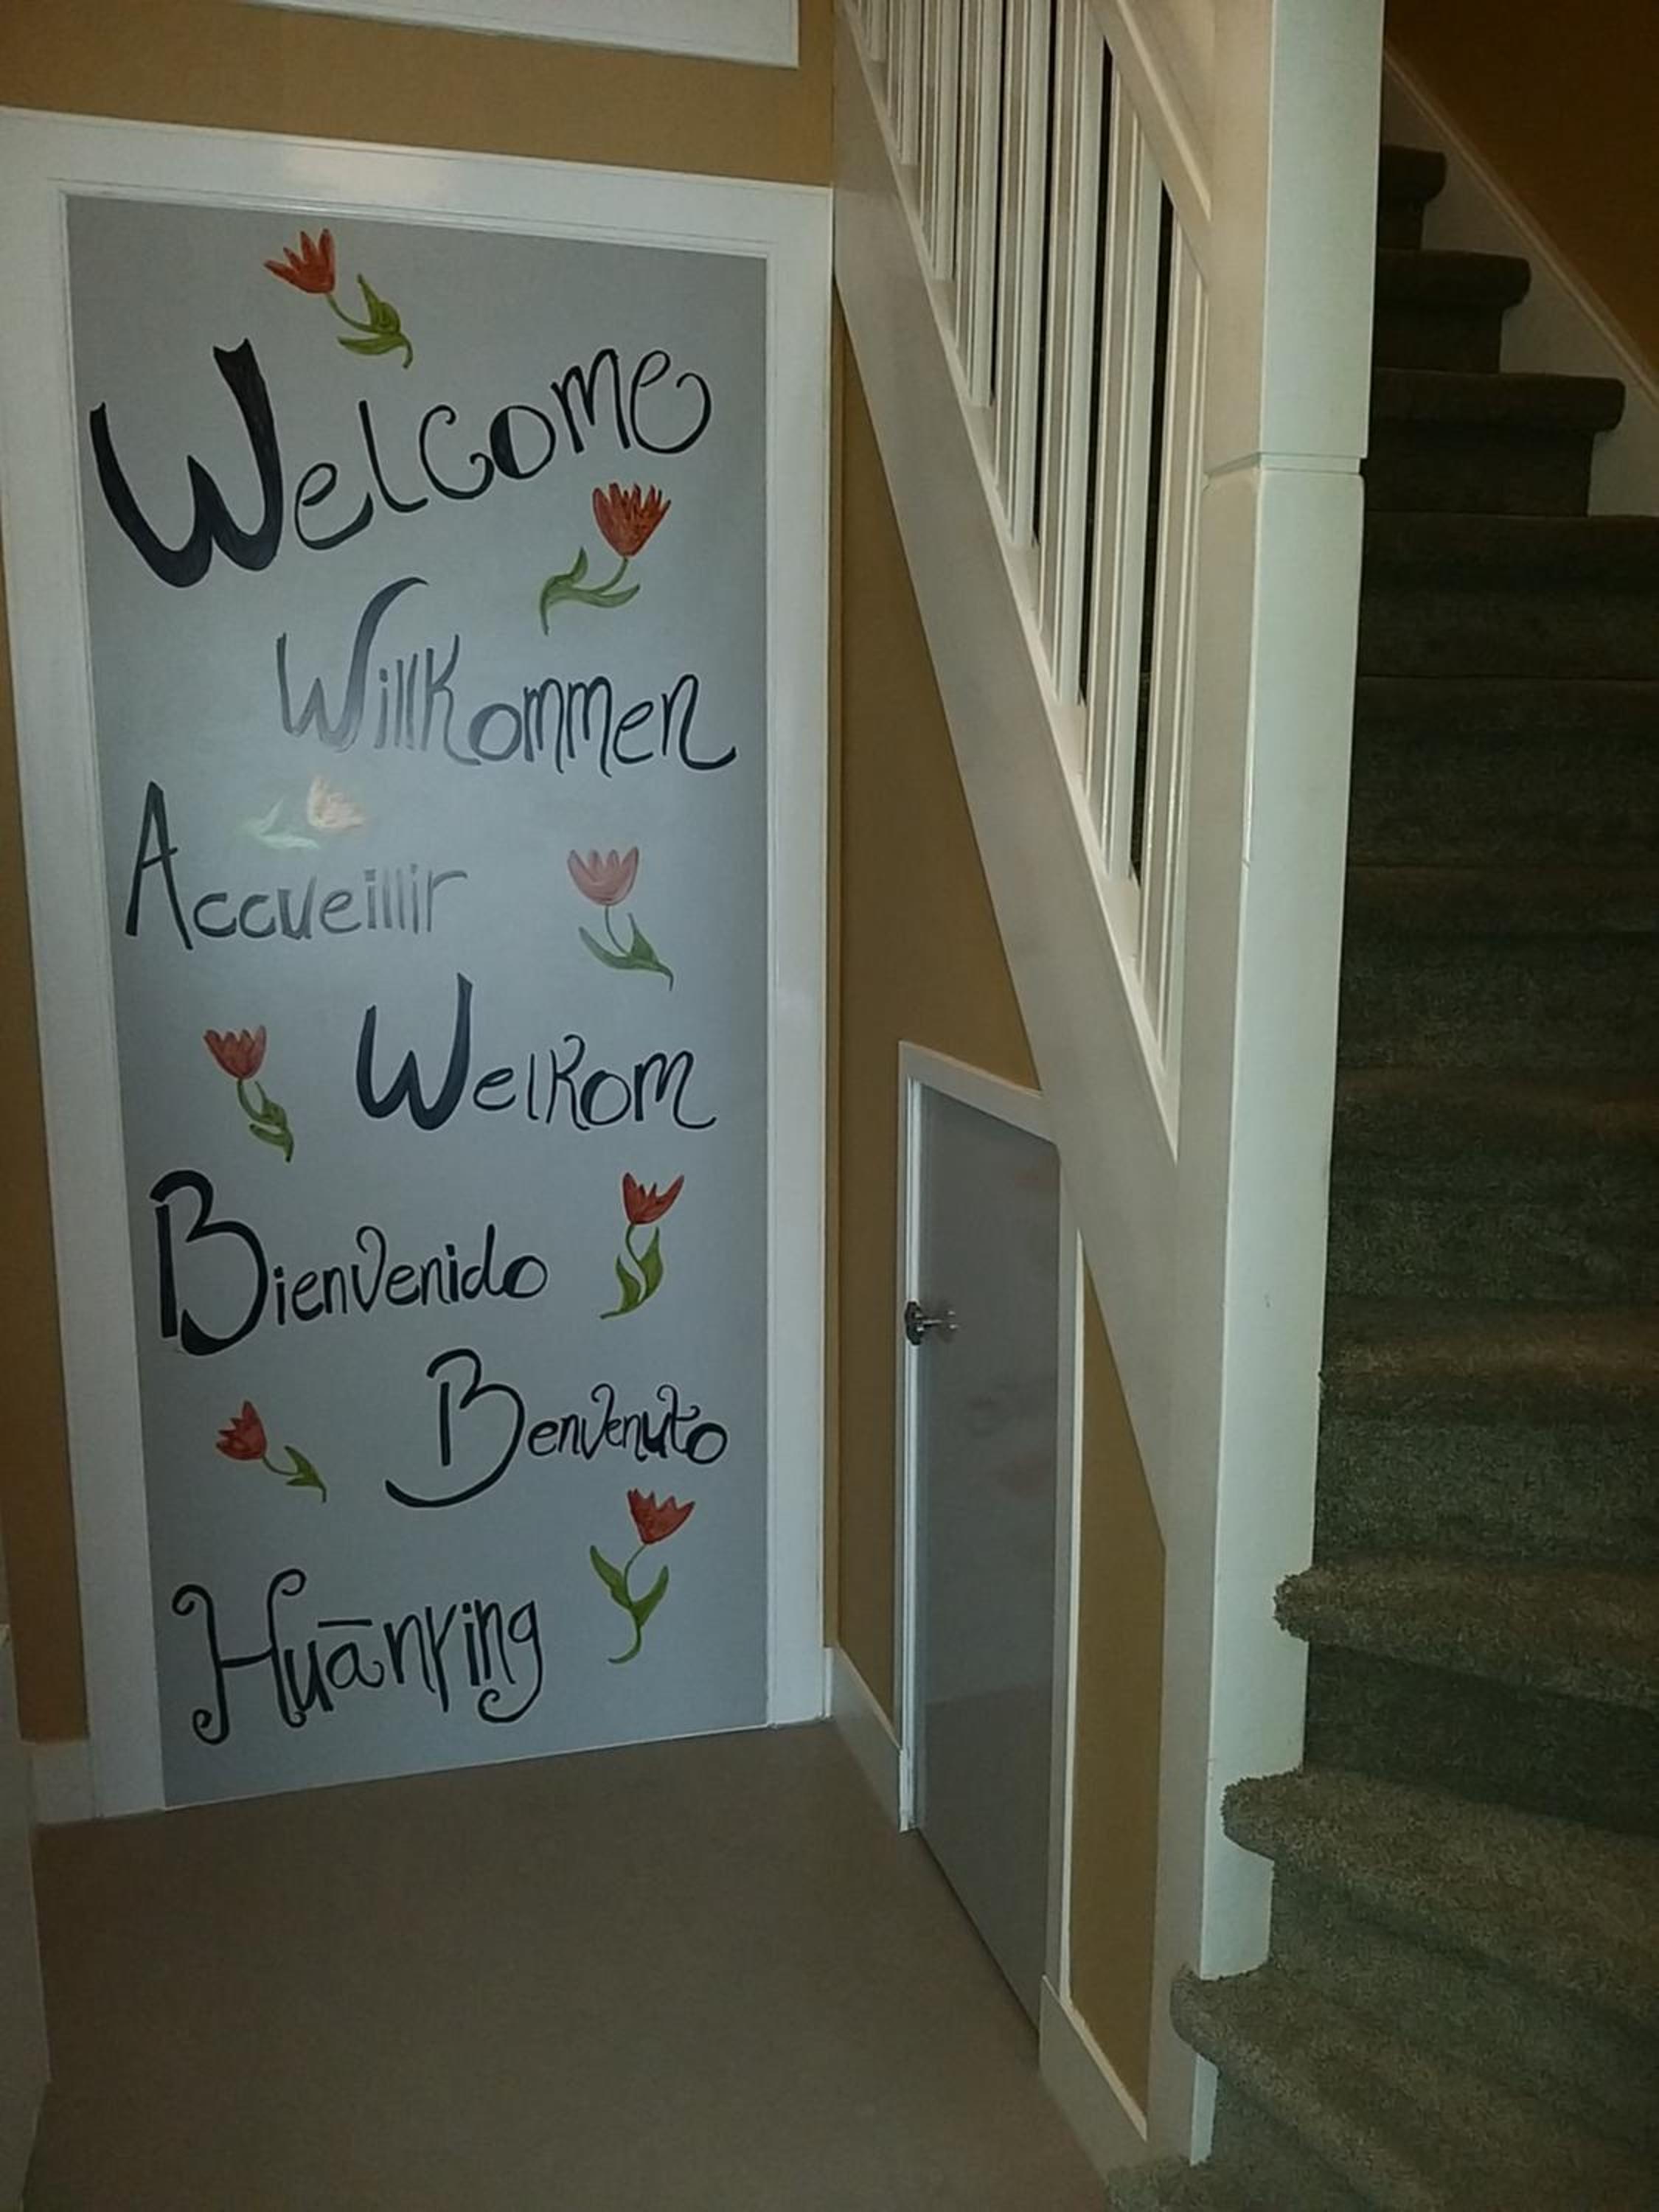 Welcome
Willkommen
Accueillir
Welkom
Bienvenido
Benvenuto
Huānying